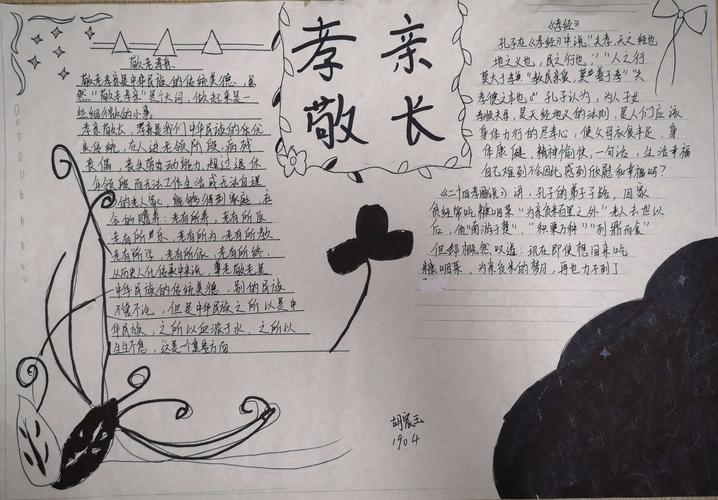 孝 亲
敬 长
敬老孝亲
敬老孝亲是中华民族的传统美德，虽
然“敬老孝亲”是佳词，做起来是一
些细微的小事。
孝亲敬长，孝亲是我们中华民族的优
良传统，在人进老领阶段，病残
丧偶，丧失劳动能力，超过退休
年领段而无法工作生活或无法自理
的老人家，能够得到家庭、社
会的赡养，老有所养，老有所医
老有所乐，老有所为，老有所教
老有所学，老有所依，老有所终
从历史人化传承中来说，尊老敬老是
中华民族的传统美德，别的民族
不管不论，但是中华民族之所以是中
华民族，之所以血浓于水，之所以
生生不息，这是一个重要方面
《孝经》
孔子在《孝经》中说“夫孝，天之经也
地之义也，民之行也，”“人之行
莫大于孝”“教民亲爱，莫善于孝”“夫
孝德之本也”孔子认为，为人子女
孝顺父母，是天经地义的法则，是人们应该
身体力行的尽孝心，使父母衣食丰足，身
体康健，精神愉快，一句话，生活幸福
自己难到不会因此感到欣慰和幸福吗？
《二十四孝图说》讲，孔子的弟子子路，因家
贫经常吃糠咽菜“为亲负米百里之外”老人去世以
后，他“南游于楚”，“积粟万钟”“列鼎而食”
但却慨然以道：现在即使想回来吃
糠咽菜，为亲负米的梦月，再也力不到了
1904